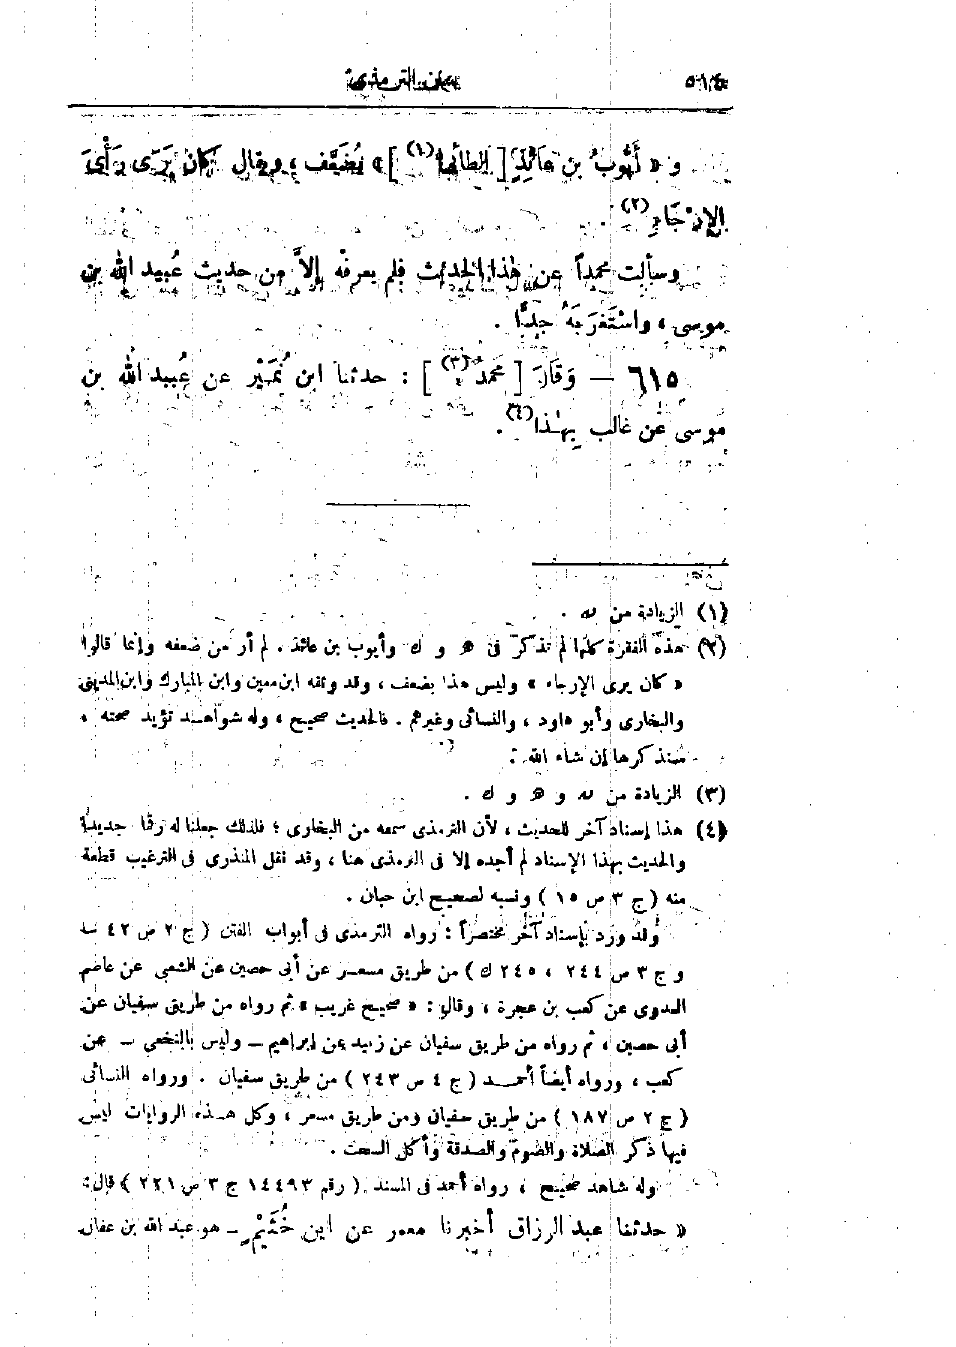 ٥١٤ سنن الترمذى
و « أَيُّوبُ بن عَائِذٍ [ الطائى(١) ] » يُضَعَّف ، ويقال كان يَرَى رَأْىَ
الإِرْجَاءِ(٢) .
وسألت محمداً عن هذا الحديث فلم يعرفه إلاَّ من حديث عُبيد الله بن
موسى ، واسْتَغْرَبَهُ جدًّا .
٦١٥ — وَقَالَ [ محمدٌ(٣) ] : حدثنا ابن نُمَيْرٍ عن عُبيد الله بن
موسى عن غالب بهذا(٤) .
(١) الزيادة من
(٢) هذه الفقرة كلها لم تذكر فى ه و ك وأيوب بن عائذ . لم أر من ضعفه وإنما قالوا
« كان يرى الإرجاء » وليس هذا بضعف ، وقد وثقه ابن معين وابن المبارك وابن المدينى
والبخارى وأبو داود ، والنسائى وغيرهم . فالحديث صحيح ، وله شواهد تؤيد صحته ،
سنذكرها إن شاء الله .
(٣) الزيادة من و ه و ك .
(٤) هذا إسناد آخر للحديث ، لأن الترمذى سمعه من البخارى ؛ فلذلك جعلنا له رقما جديدا
والحديث بهذا الإسناد لم أجده إلا فى الترمذى هنا ، وقد نقل المنذرى فى الترغيب قطعة
منه ( ج ٣ ص ١٥ ) ونسبه لصحيح ابن حبان .
وقد ورد بإسناد آخر مختصراً : رواه الترمذى فى أبواب الفتن ( ج ٢ ص ٤٢
و ج ٣ ص ٢٤٤ ، ٢٤٥ ك ) من طريق مسعر عن أبى حصين عن الشعبى عن عاصم
العدوى عن كعب بن عجرة ، وقال : « صحيح غريب » ثم رواه من طريق سفيان عن
أبى حصين ، ثم رواه من طريق سفيان عن زبيد عن إبراهيم – وليس بالنخعى – عن
كعب ، ورواه أيضاً أحمد ( ج ٤ ص ٢٤٣ ) من طريق سفيان . ورواه النسائى
( ج ٢ ص ١٨٧ ) من طريق سفيان ومن طريق مسعر ، وكل هذه الروايات ليس
فيها ذكر الصلاة والصوم والصدقة وأكل السحت .
وله شاهد صحيح ، رواه أحمد فى المسند ( رقم ١٤٤٩٣ ج ٣ ص ٢٢١ ) قال :
« حدثنا عبد الرزاق أخبرنا معمر عن ابن خُثَيْمٍ – هو عبد الله بن عثمان